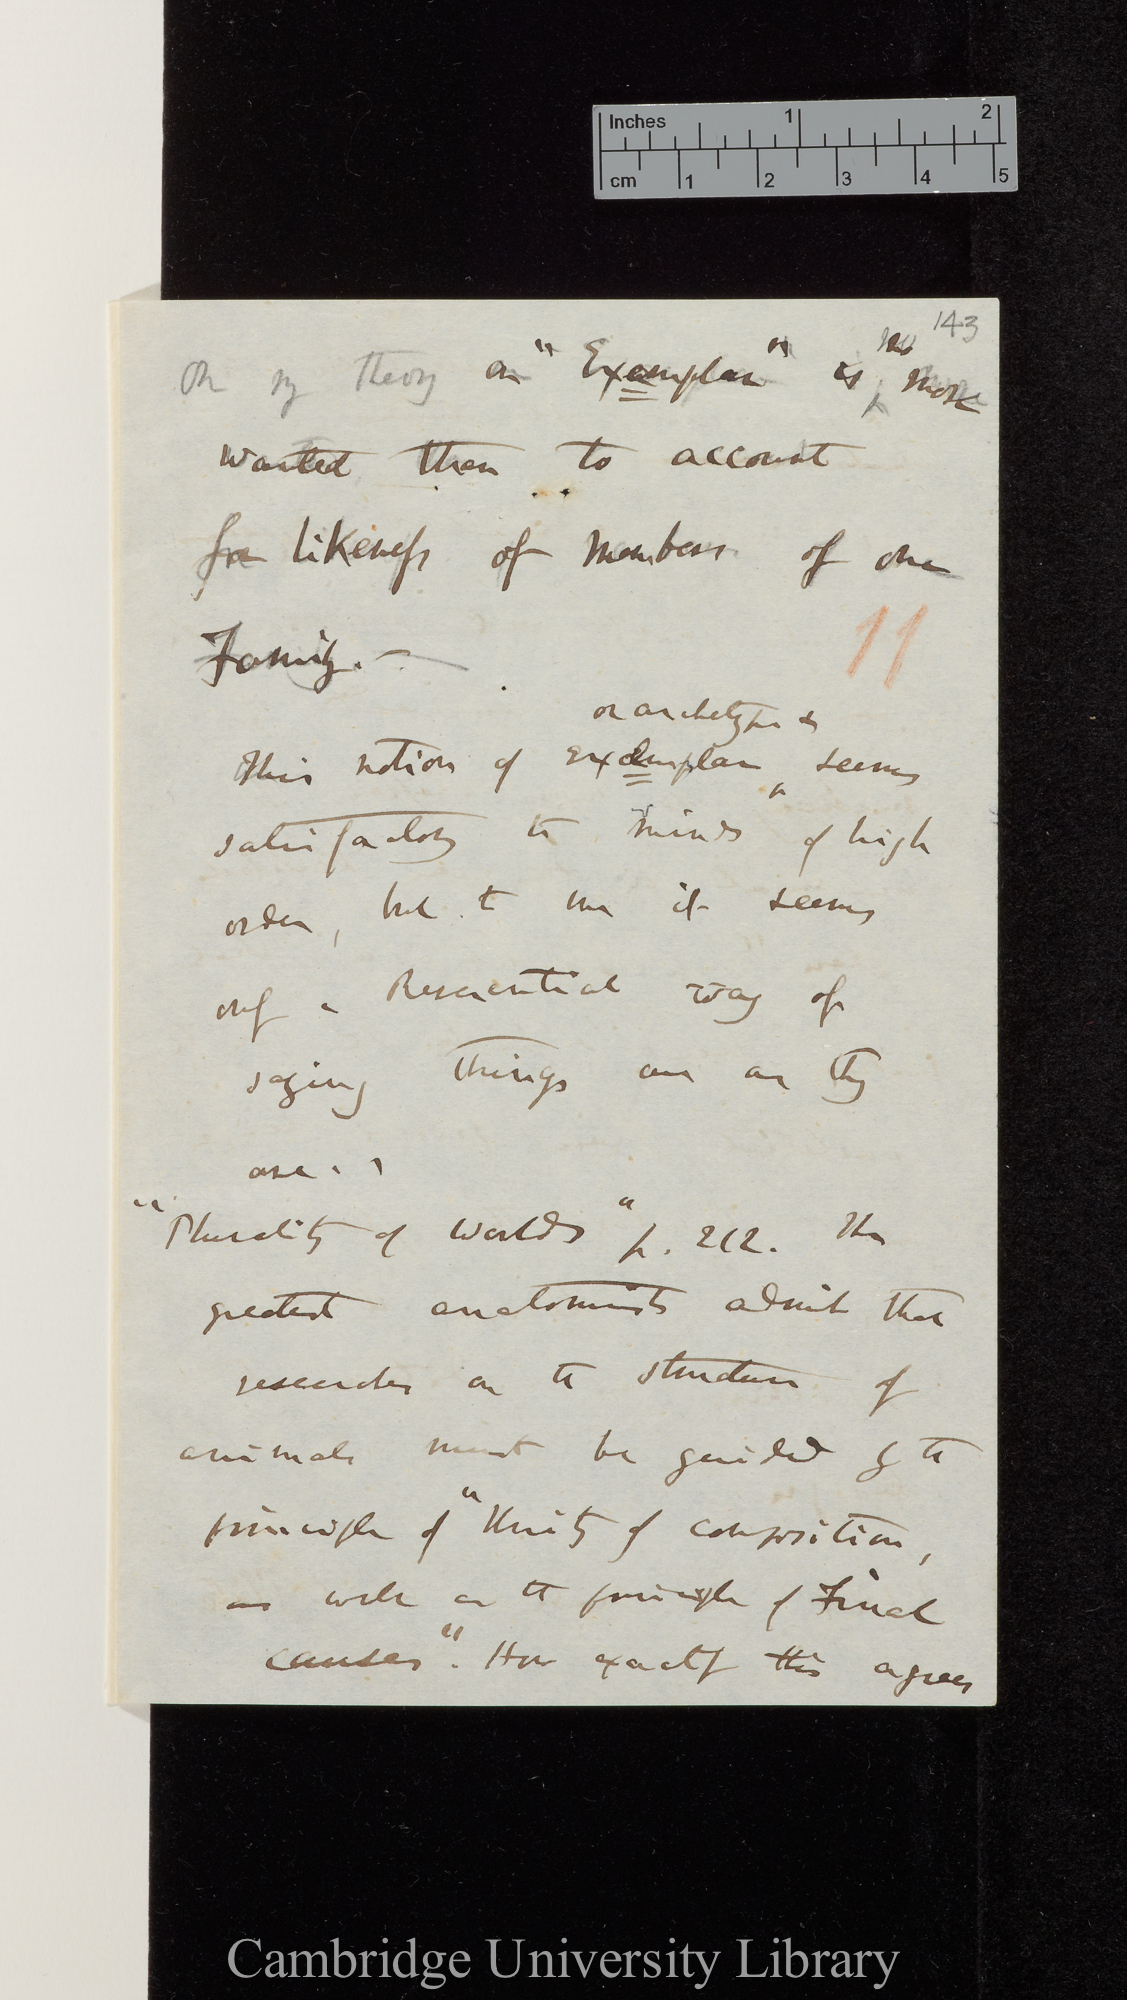 Inches 1 2
cm 1 2 3 4 5
143
On my theory an "Exemplar" is no more
wanted then to account
for likeness of members of one
Family. —
or archetype is
This notion of exemplar seems
satisfactory to minds of high
order, but to me it seems
only a Reverential way of
saying things are as they
are.
11
"Plurality of Worlds" p. 212. The
greatest anatomists admit that
researches on the structure of
animals must be guided by the
principle of "Unity of composition,
as well as the principle of Final
causes". How exactly this agrees
Cambridge University Library